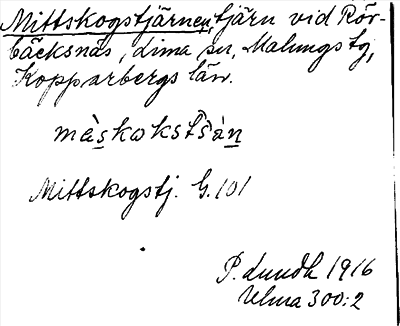 Mittskogstjärnen, tjärn vid Rör-
bäcksnäs, Lima sn, Malungs tg,
Kopparbergs län.
mɑ̀skokstšàn
Mittskogstj. G. 101
P. Lundh 1916
Ulma 300:2